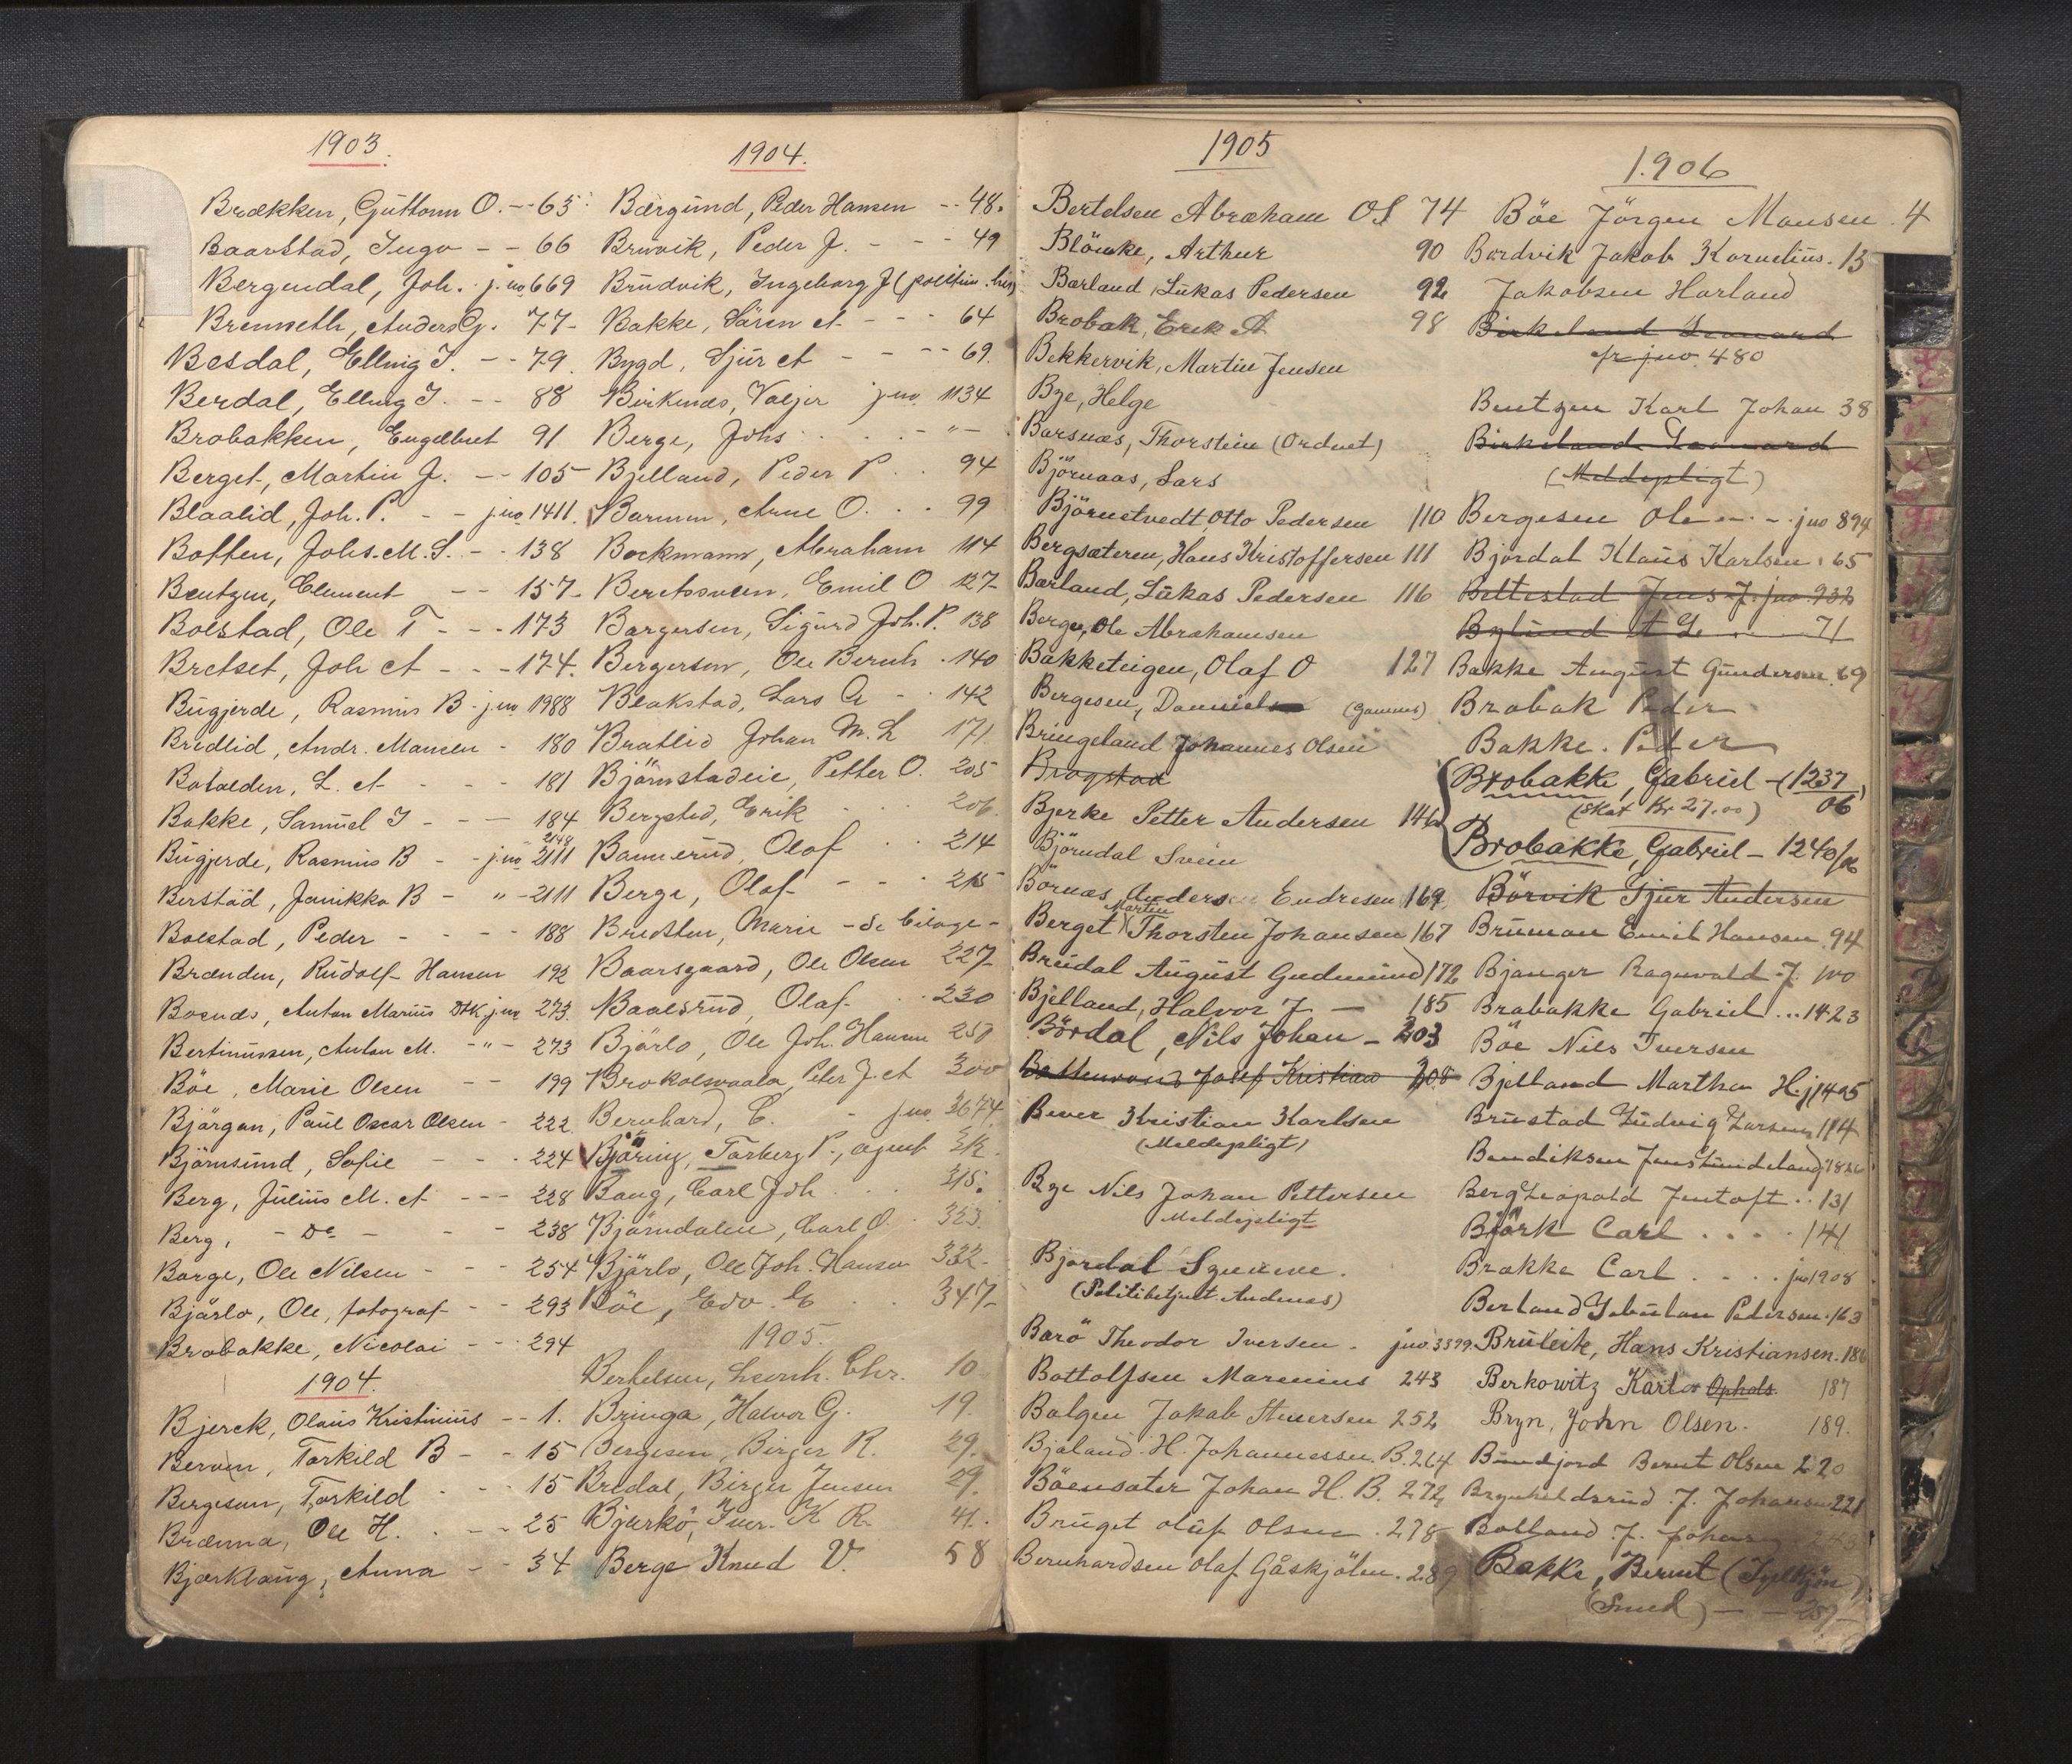 1903.
Brækken, Guttorm O. -- 65
Baarstad, Inga - - 66
Bergendal, Joh. j.no 669
Brenneth, Anders G. 77-
Besdal, Elling I. -- 79
Berdal, Elling I. -- 88
Brobakken, Engelbret 91
Berget, Martin J. -- 105
Blaalid, Joh. P. - - j.no 1411.
Botten, Johs. M. S. - - 138
Bentzen, Clement - - 157-
Bolstad, Ole T - - - 173
Bretset, Joh A - - - 174.
Bugjerde, Rasmus B - j.no 1988
Bredlid, Andr. Mansen - 180
Bataldén, L. A - - - 181
Bakke, Samuel I - - - 184
2148
Bugjerde, Rasmus B - - j.no 2111
Berstad, Jannikke B - " - 2111
Bolstad, Peder - - - - 188
Brænden, Rudolf Hansen 192
Boends, Anton Marius j.no 273.
Bertinussen, Anton M. - " - 273
Böe, Marie Olsen - - 199
Björgan, Paul Oscar Olsen - 222.
Björnsund, Sofie - - - 224
Berg, Julius M. A - - - 228
Berg, - Do - - - 238
Borge, Ole Nilsen - - - 254
Bjärlo, Ole, fotograf - - 293
Brobakke, Nicolai - - - 294
1904.
Bjerck, Olaus Kristinius - - 1.
Berven, Torkild B - - 15
Bergesen, Torkild - - - 15
Brænna, Ole H. - - - 25
Bjørklaug, Anna - - 34
1904.
Bergund, Peder Hansen - - 48.
Bruvik, Peder J. - - - 49
Brudvik, Ingeborg J
Bakke, Sören A - - - 64
Bygd, Sjur A - - - - 69.
Birkenes, Valjer j.no 1134
Berge, Johs . . . - " -
Bjelland, Peder P . . 94
Barmen, Arne O. . . 99
Bockmann, Abraham 114
Berntssveen, Emil O 127
Bergersen, Sigurd Joh. P. 138
Bergersen, Ole Bernh. 140
Blakstad, Lars A - . 142
Bratlid Johan M. L 171.
Björnstadeie, Petter O. 205
Bergsted, Erik - . . . 206.
Bannerud, Olaf . . 214
Berge, Olaf - - - . 215
Bredsten, Marie - do
Baarsgaard, Ole Olsen 227-
Baalsrud, Olaf . . 230
Bjärlo, Ole Joh. Hansen 250
Peter J. A 300
Bernhard, C. - j.no 3674.
Björing, Torberg P., agent 312.
Bang, Carl Joh . . 315.
Björndalen, Carl O. . 323.
Bjärlo, Ole Joh. Hansen 332-
Böe, Edv. E . . 347-
1905.
Bertelsen, Leonh. Chr. 10
Bringa, Halvor G. 19.
Bergesen, Birger R. 29.
Bredal, Birger Jensen 29.
Bjerkö, Iver K R. 41.
Berge Knud V. 58
1905
Bertelsen Abraham OS 74
Blömke, Arthur 90
Børland, Lukas Pedersen 92
Brobak, Erik A 98
Bekkervik, Martin Jensen
Bye, Helge
Barsnæs, Thorstein (Ordnet)
Björnaas, Lars
Björnstvedt Otto Pedersen 110
Bergsæteren, Hans Kristoffersen 111
Børland, Lukas Pedersen 116
Berge, Ole Abrahamsen
Bakketeigen, Olaf O 127
Bergesen, Daniel
Bringeland Johannes Olsen
Brogstad
Bjerke Petter Andersen 146
Björndal Svein
Börnæs, Anders Endresen 169
Martin
Berget Thorsten Johansen 167
Breidal August Gudmund 172
Bjelland, Halvor J. - 185
Bördal, Nils Johan - 203
Josef Kristian 208
Bever Kristian Karlsen
(Meldepligt)
Bye Nils Johan Pettersen
Meldepligt
Bjordal Synneve.
(Politibetjent Andenæs)
Barö Theodor Iversen . j.no 3399.
Bottolfsen Marenius 243
Bolgen Jakob Iversen 252
Bjaland H. Johannessen. B. 264
Böensæter Johan H. B. 272
Bruget Oluf Olsen . 278
Bernhardsen Olaf Gåskjölen. 289
1906
Böe Jörgen Monsen . 4
Bordvik Jakob Kornelius. 13
Jakobsen Harland
Birkeland Leonard
cfr jno. 480
Bentzen Karl Johan 38
Birkeland Leonard
(Meldepligt)
Bergesen Ole - . - . jno 894
Bjordal Klaus Karlsen . 65
Bettestad Jens J. jno 932
Bylund A L. . . . . 71
Bakke August Gundersen 69
Brobak Peder
Bakke. Peder
Brobakke, Gabriel - (1237/06)
(Skat Kr 27.00)
Brobakke, Gabriel - 1240/06
Börvik Sjur Andersen
Bruman Emil Hansen . 94
Bjanger Ragnvald J. 100
Brobakke Gabriel ... 1423
Böe Nils Iversen
Bjelland Martha H. j 1495
Brustad Ludvig Larsen 114
Bendiksen
Berg Leopold Jentoft . . 131
Björk Carl . . . . 141
Brakke Carl . . . . jno 1908
Berland Pedersen . 163
Bruleite, Hans Kristiansen. 186
Berkowitz Karl Ophols. 187
Bryn, John Olsen. 189.
Bernt Olsen 220
Brynhildsrud J. Johansen 221
Bolland J. Johan
Bakke, Bernt
(Smed) - - 257-